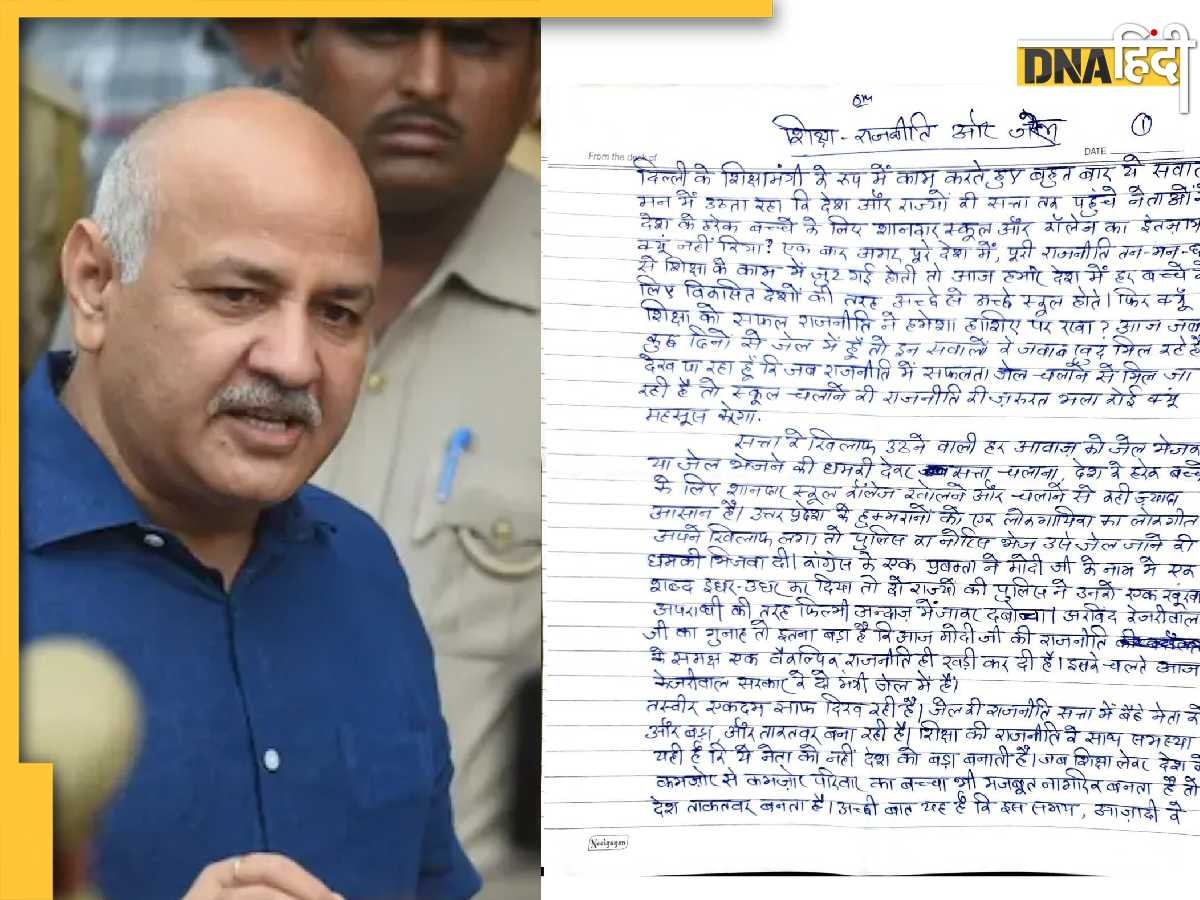 DNA हिंदी
ॐ
शिक्षा - राजनीति और जेल
1
From the desk of
DATE
दिल्ली के शिक्षामंत्री के रूप में काम करते हुए बहुत बार ये सवाल
मन में उठता रहा कि देश और राज्यों की सत्ता तक पहुंचे नेताओं ने
देश के हरेक बच्चे के लिए शानदार स्कूल और कॉलेज का इंतज़ाम
क्यूं नहीं किया? एक बार अगर पूरे देश में, पूरी राजनीति तन-मन-ध
से शिक्षा के काम में जुट गई होती तो आज हमारे देश में हर बच्चे के
लिए विकसित देशों की तरह अच्छे से अच्छे स्कूल होते। फिर क्यूँ
शिक्षा को सफल राजनीति ने हमेशा हाशिए पर रखा? आज जब
कुछ दिनों से जेल में हूँ तो इन सवालों के जवाब खुद मिल रहे हैं
देख पा रहा हूँ कि जब राजनीति में सफलता जेल-चलाने से मिल जा
रही है तो स्कूल-चलाने की राजनीति की ज़रुरत भला कोई क्यूं
महसूस करेगा.
सत्ता के खिलाफ उठने वाली हर आवाज़ को जेल भेजकर
या जेल भेजने की धमकी देकर सत्ता-चलाना, देश के हरेक बच्चे
के लिए शानदार स्कूल कॉलेज खोलने और चलाने से कहीं ज़्यादा
आसान है। उत्तर प्रदेश के हुक्मरानों को, एक लोकगायिका का लोकगीत
अपने खिलाफ लगा तो पुलिस का नोटिस भेज उसे जेल जाने की
धमकी भिजवा दी। कांग्रेस के एक प्रवक्ता ने मोदी जी के नाम में एक
शब्द इधर-उधर कर दिया तो दो राज्यों की पुलिस ने उनको एक खूंखा
अपराधी की तरह फिल्मी अन्दाज़ में जाकर दबोचा। अरविंद केजरीवाल
जी का गुनाह तो इतना बड़ा है कि आज मोदी जी की राजनीति
के समक्ष एक वैकल्पिक राजनीति ही खड़ी कर दी है। इसके-चलते आज
केजरीवाल सरकार के दो मंत्री जेल में है।
तस्वीर एकदम साफ दिख रही है। जेल की राजनीति सत्ता में बैठे नेता को
और बड़ा, और ताकतवर बना रही है। शिक्षा की राजनीति के साथ समस्या
यही है कि ये नेता को नहीं देश को बड़ा बनाती है। जब शिक्षा लेकर देश के
कमज़ोर से कमज़ोर परिवार का बच्चा भी मजबूत नागरिक बनता है तो
देश ताकतवर बनता है। अच्छी बात यह है कि इस समय, आज़ादी के
Neelgagan